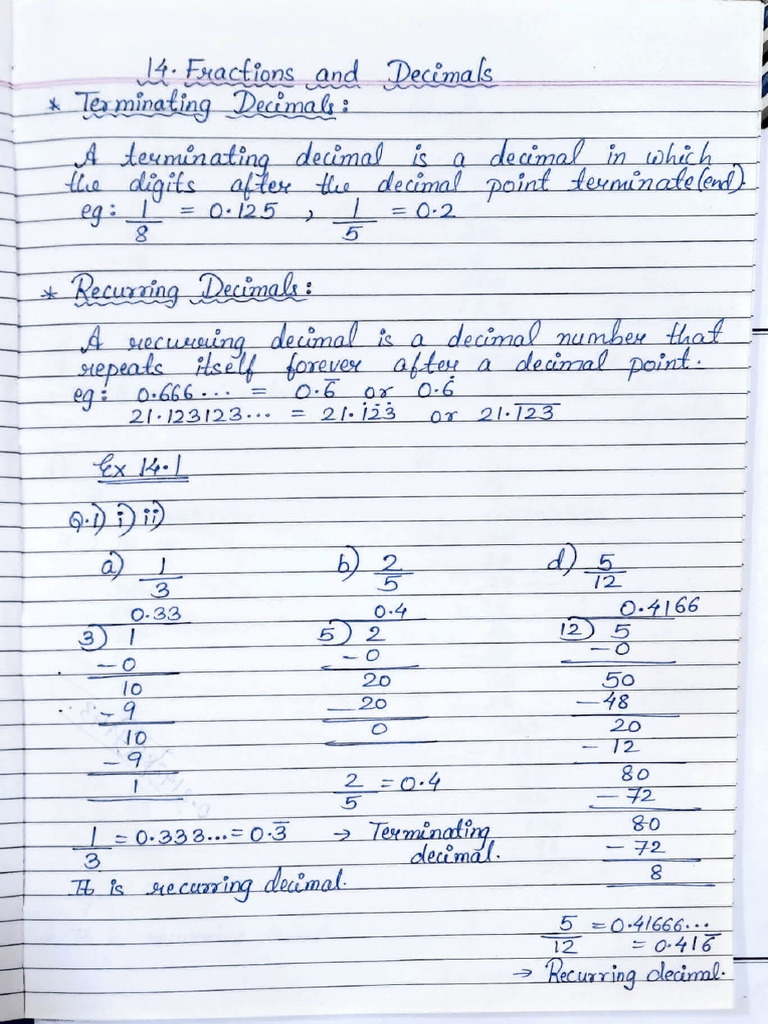 14. Fractions and Decimals
* Terminating Decimals:
A terminating decimal is a decimal in which
the digits after the decimal point terminate (end)
eg: 1/8 = 0.125 , 1/5 = 0.2
* Recurring Decimals:
A recurring decimal is a decimal number that
repeats itself forever after a decimal point.
eg: 0.666... = 0.6̅ or 0.6̇
21.123123... = 21.1̇2̇3̇ or 21.1̅2̅3̅
Ex 14.1
Q.1) i) ii)
a) 1/3
0.33
3) 1
-0
10
-9
10
-9
1
1/3 = 0.333... = 0.3̅
It is recurring decimal.
b) 2/5
0.4
5) 2
-0
20
-20
0
2/5 = 0.4
→ Terminating
decimal.
d) 5/12
0.4166
12) 5
-0
50
-48
20
-12
80
-72
80
-72
8
5/12 = 0.41666...
= 0.416̅
→ Recurring decimal.